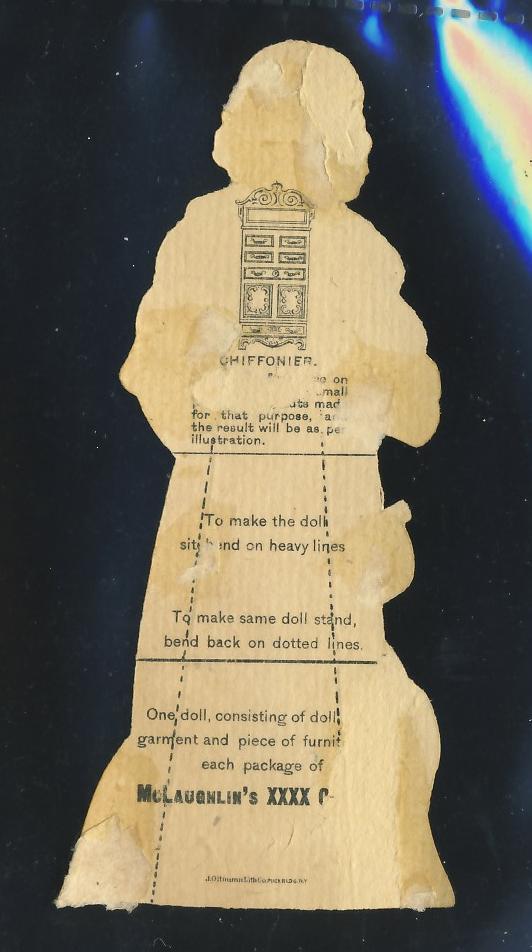 CHIFFONIER.
on
made
for that purpose,
the result will be as per
illustration.
To make the doll
sit bend on heavy lines
To make same doll stand,
bend back on dotted lines.
One doll, consisting of doll
garment and piece of furnit
each package of
McLAUGHLIN'S XXXX C
J.Ottmann Lith Co. PUCK BLDG. N.Y